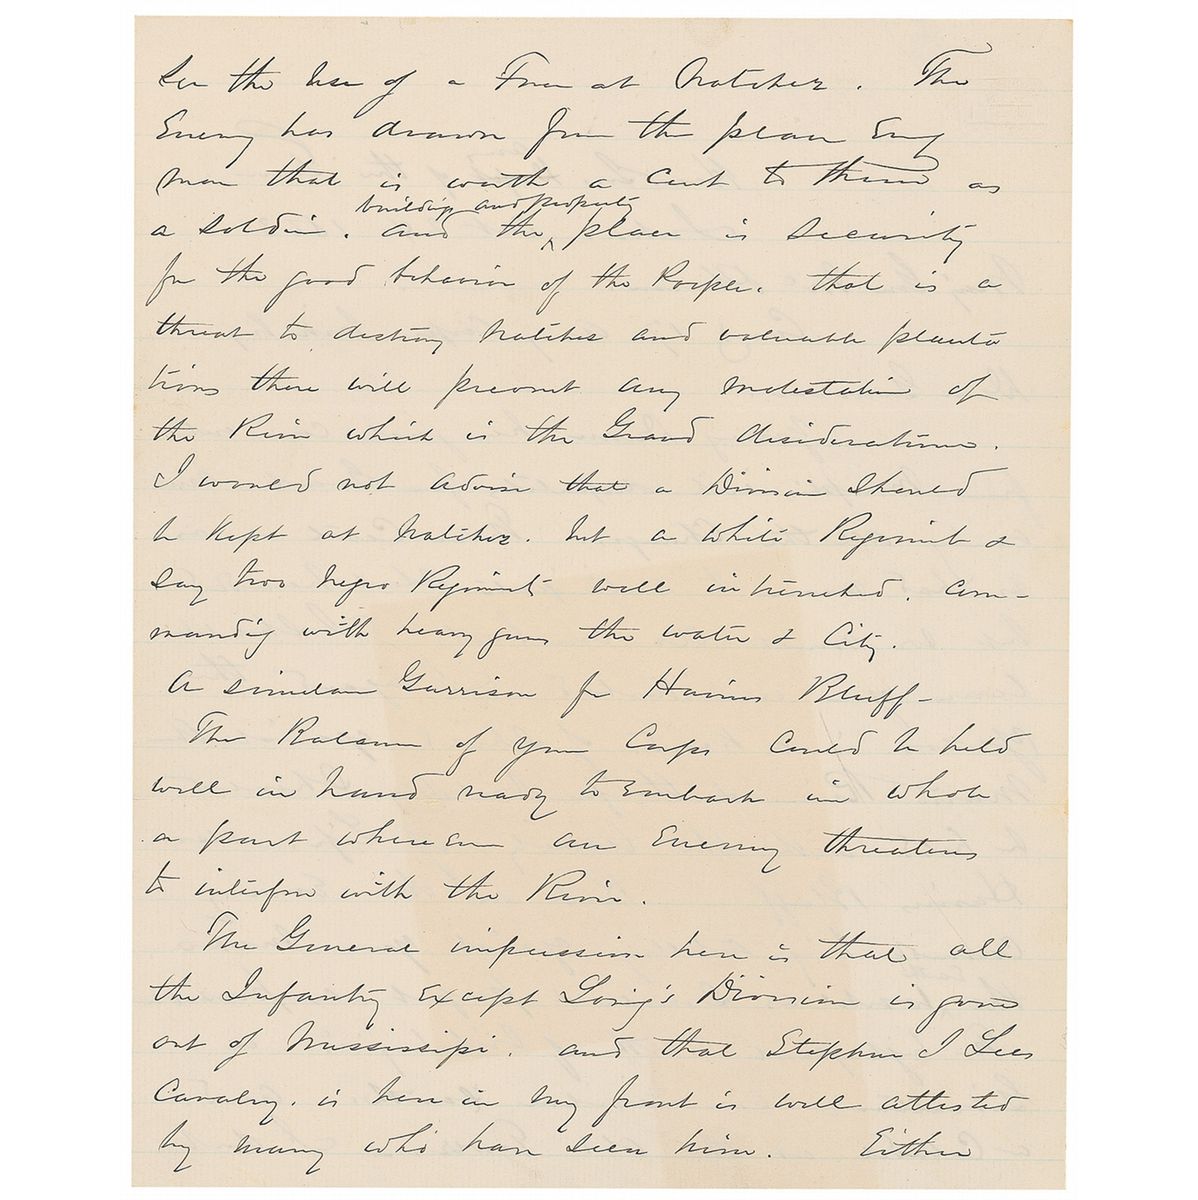 see the use of a Force at Natchez. The
Enemy has drawn from the place Evey
man that is worth a cent to them as
buildings and property
a soldier. and the ^ place is security
for the good behavior of the People. that is a
threat to destroy Natchez and valuable planta
tions there will prevent any molestation of
the River which is the Grand desideratum.
I would not advise that a Division should
be kept at Natchez. but a white Regiment &
say two negro Regiments well intrenched. com-
manding with heavy guns the water & City.
A similar Garrison for Haines Bluff-
The Balance of your Corps could be held
well in hand ready to Embark in whole
or part whereever an Enemy threatens
to interfere with the River.
The General impression here is that all
the Infantry Except Loring's Division is gone
out of Mississippi. and that Stephen D Lees
Cavalry. is here in my front is well attested
by many who have seen him. Either